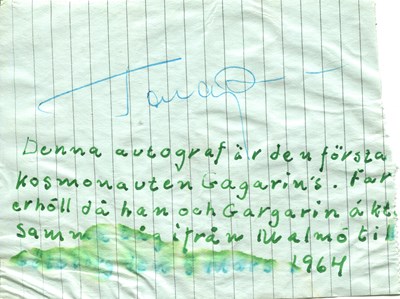 Denna autograf är den första
kosmonauten Gagarin's. Far
erhöll då han och Gargarin åkt
ifrån Malmö til
Mars 1964